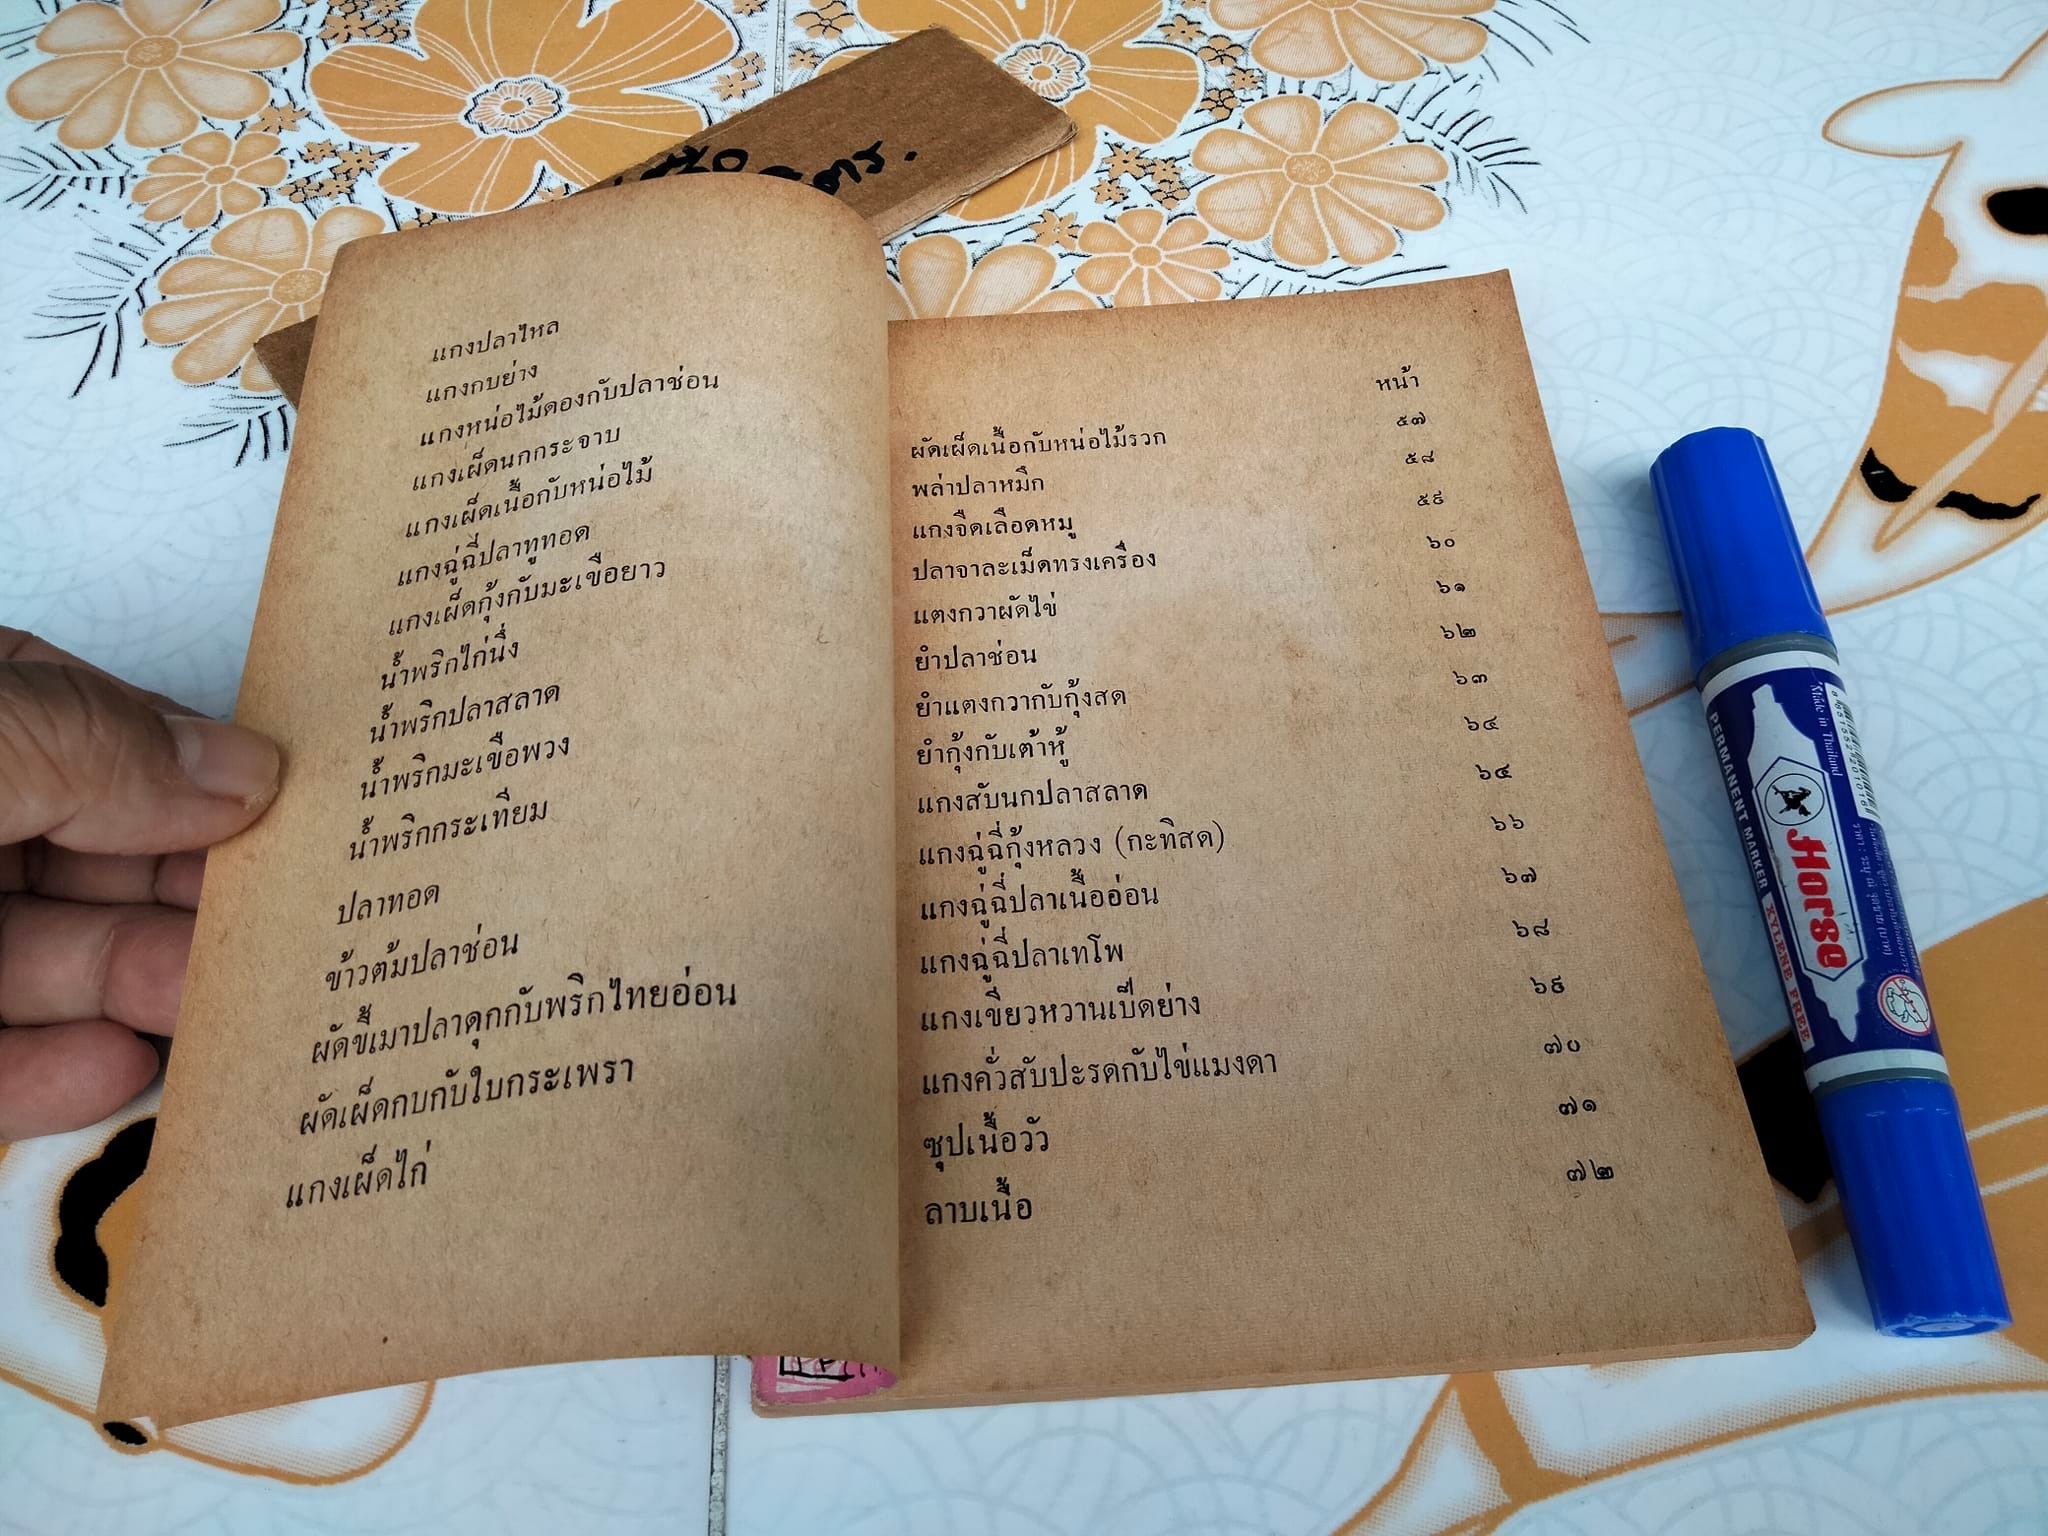 แกงปลาไหล
แกงกบย่าง
แกงหน่อไม้ดองกับปลาช่อน
แกงเผ็ดนกกระจาบ
แกงเผ็ดเนื้อกับหน่อไม้
แกงฉู่ฉี่ปลาทูทอด
แกงเผ็ดกุ้งกับมะเขือยาว
น้ำพริกไก่นึ่ง
น้ำพริกปลาสลาด
น้ำพริกมะเขือพวง
น้ำพริกกระเทียม
ปลาทอด
ข้าวต้มปลาช่อน
ผัดขี้เมาปลาดุกกับพริกไทยอ่อน
ผัดเผ็ดกบกับใบกระเพรา
แกงเผ็ดไก่
หน้า
ผัดเผ็ดเนื้อกับหน่อไม้รวก ๕๗
พล่าปลาหมึก ๕๘
แกงจืดเลือดหมู ๕๙
ปลาจาละเม็ดทรงเครื่อง ๖๐
แตงกวาผัดไข่ ๖๑
ยำปลาช่อน ๖๒
ยำแตงกวากับกุ้งสด ๖๓
ยำกุ้งกับเต้าหู้ ๖๔
แกงสับนกปลาสลาด ๖๕
แกงฉู่ฉี่กุ้งหลวง (กะทิสด) ๖๖
แกงฉู่ฉี่ปลาเนื้ออ่อน ๖๗
แกงฉู่ฉี่ปลาเทโพ ๖๘
แกงเขียวหวานเป็ดย่าง ๖๙
แกงคั่วสับปะรดกับไข่แมงดา ๗๐
ซุปเนื้อวัว ๗๑
ลาบเนื้อ ๗๒
Made in Thailand
PERMANENT MARKER
XYLENE FREE
Horse